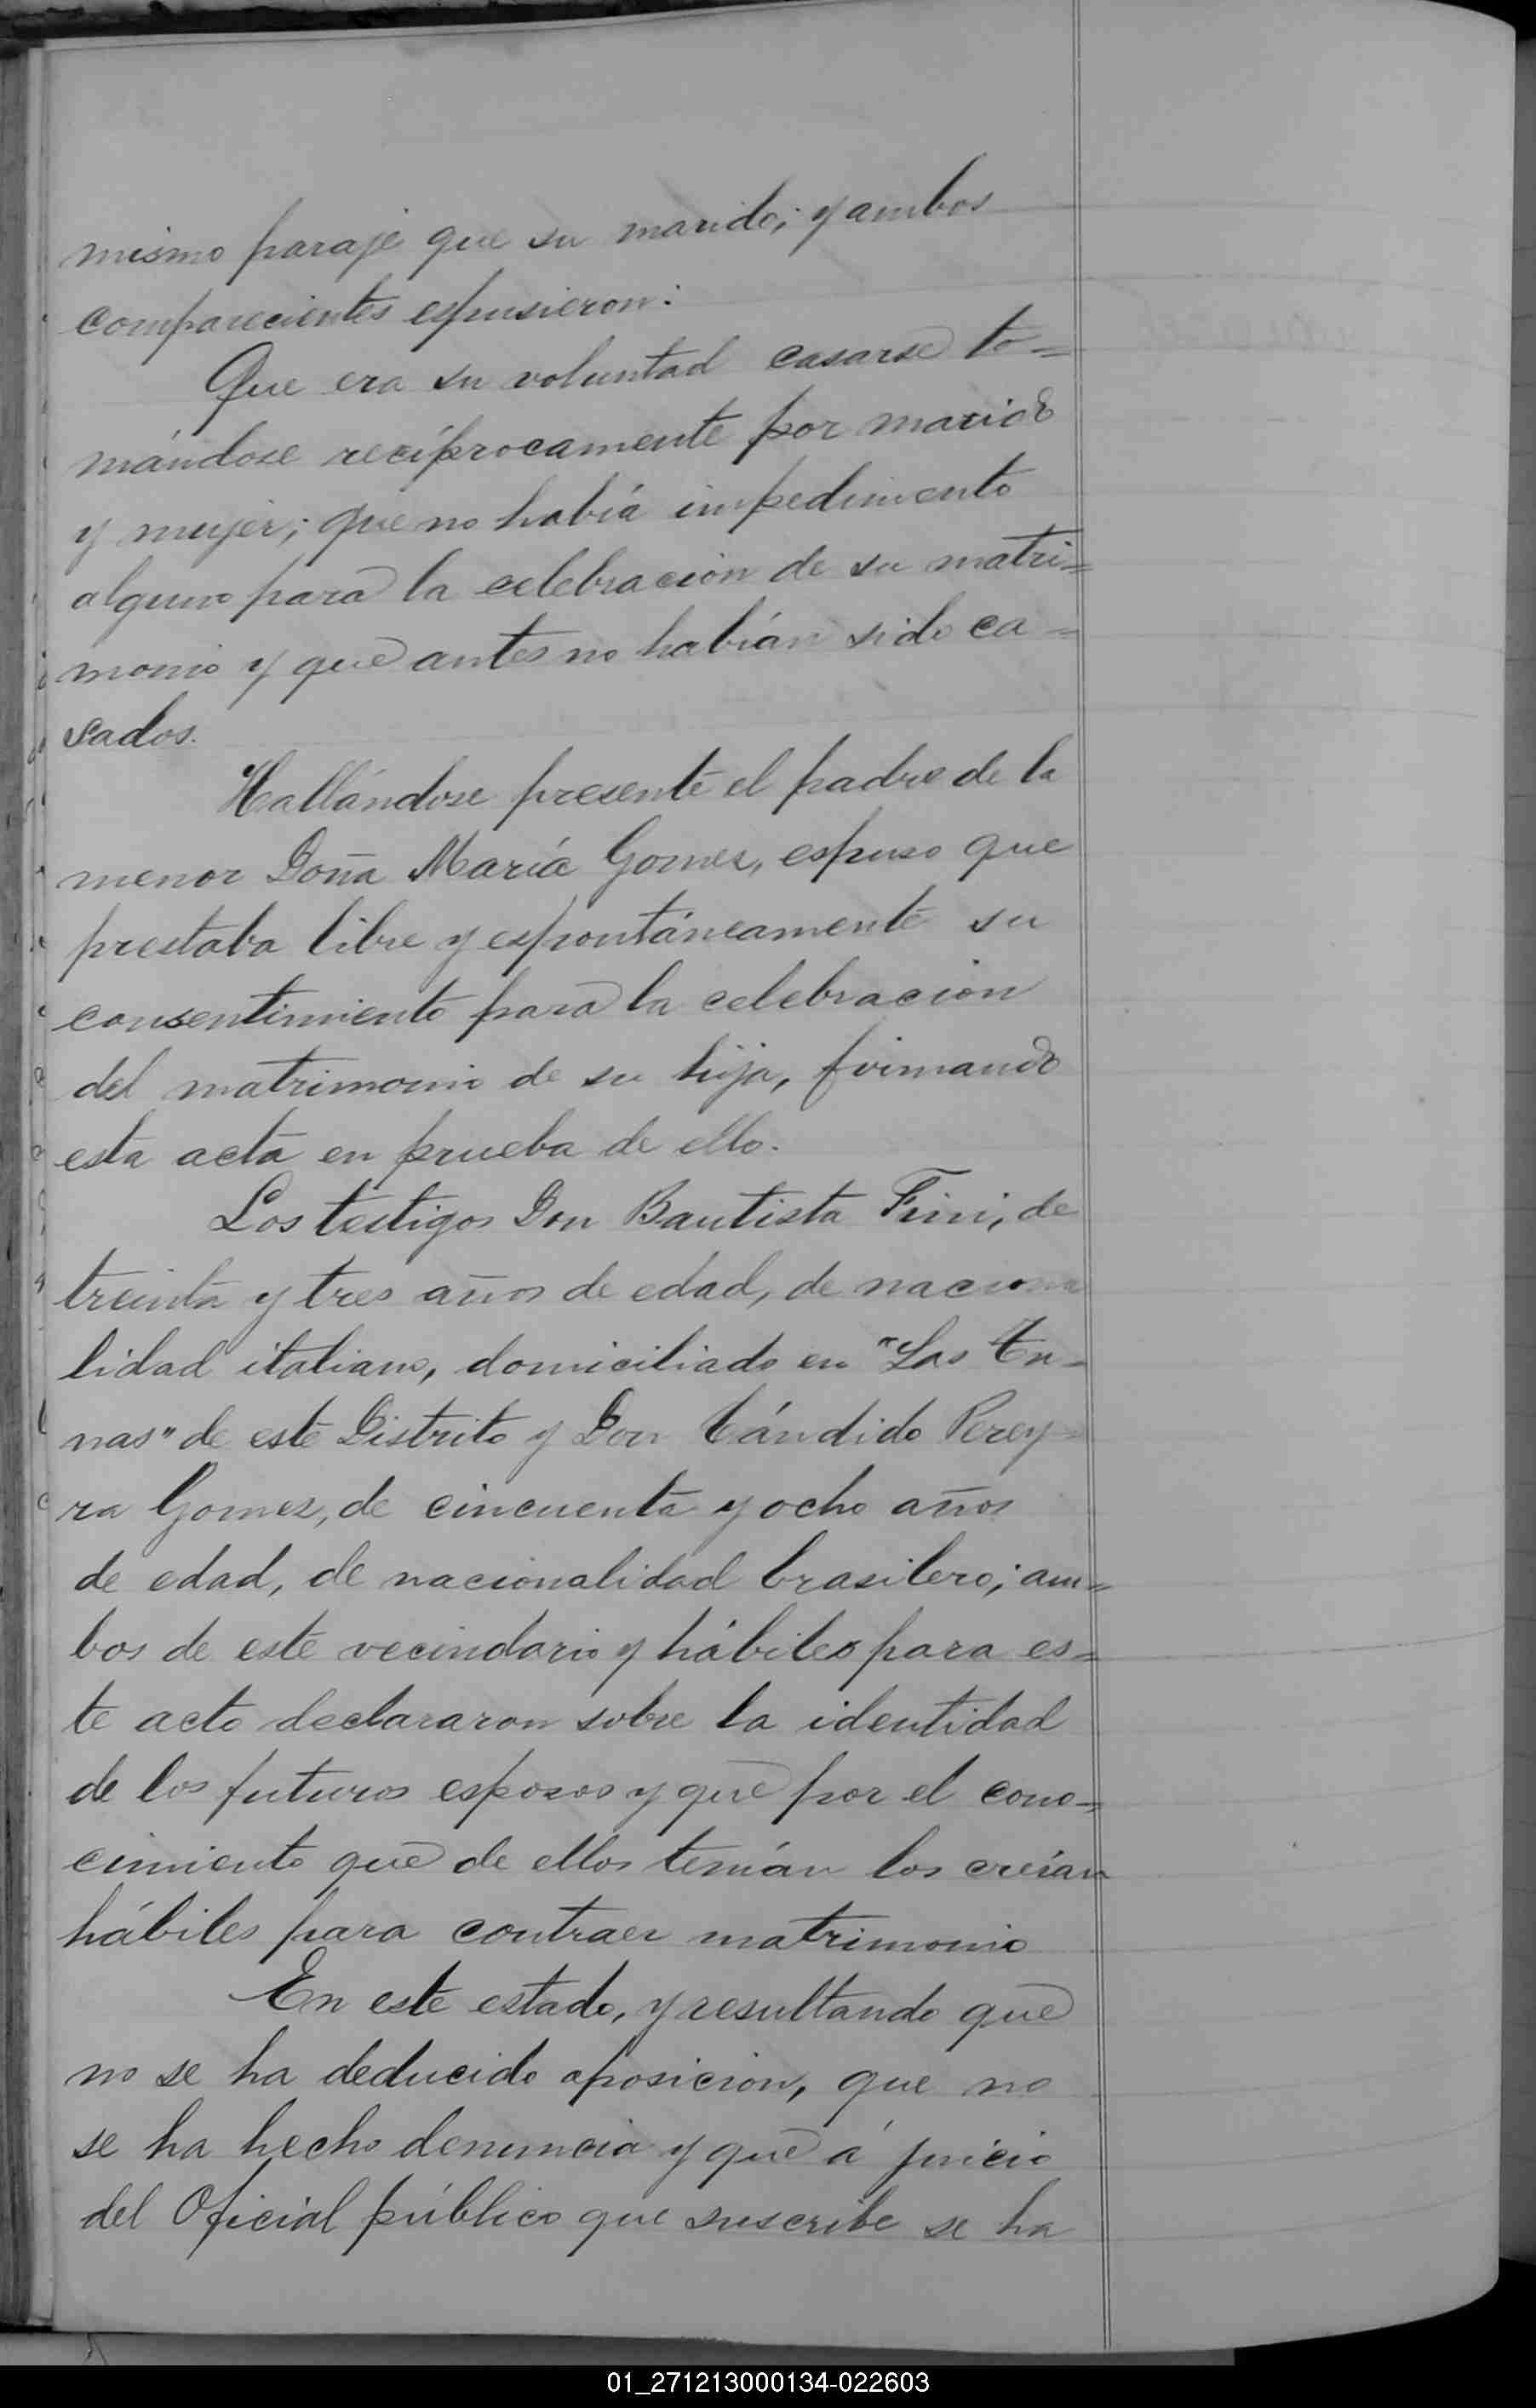 mismo paraje que su marido; y ambos
comparecientes espusieron:
Que era su voluntad casarse to=
mándose recíprocamente por marido
y mujer; que no había impedimento
alguno para la celebración de su matri=
monio y que antes no habían sido ca=
sados.
Hallándose presente el padre de la
menor Doña María Gomez, espuso que
prestaba libre y espontáneamente su
consentimiento para la celebración
del matrimonio de su hija, firmando
esta acta en prueba de ello.
Los testigos Don Bautista Fini, de
treinta y tres años de edad, de naciona
lidad italiano, domiciliado en "Las Tu-
nas" de este Distrito y Don Cándido Perey=
ra Gomez, de cincuenta y ocho años
de edad, de nacionalidad brasilero; am=
bos de este vecindario y hábiles para es=
te acto declararon sobre la identidad
de los futuros esposos y que por el cono=
cimiento que de ellos tenían los creían
hábiles para contraer matrimonio
En este estado, y resultando que
no se ha deducido oposición, que no
se ha hecho denuncia y que á juicio
del Oficial público que suscribe se ha
01_271213000134-022603